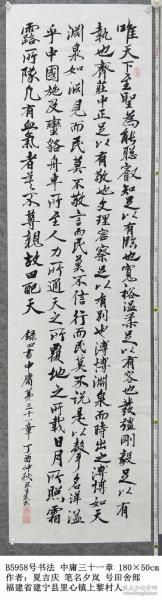 唯天下至聖為能聰叡知足以有臨也寬裕溫柔足以有容也發强剛毅足以有
執也齊莊中正足以有敬也文理密察足以有別也溥博淵泉而時出之溥博如天
淵泉如淵見而民莫不敬言而民莫不信行而民莫不說是以聲名洋溢
乎中國施及蠻貊舟車所至人力所通天之所覆地之所載日月所照霜
露所隊凡有血氣者莫不尊親故曰配天 錄四書中庸第三十一章 丁酉仲秋
B5958号书法 中庸三十一章 180×50cm
作者：夏吉庆 笔名夕岚 号田舍郎
福建省建宁县里心镇上黎村人